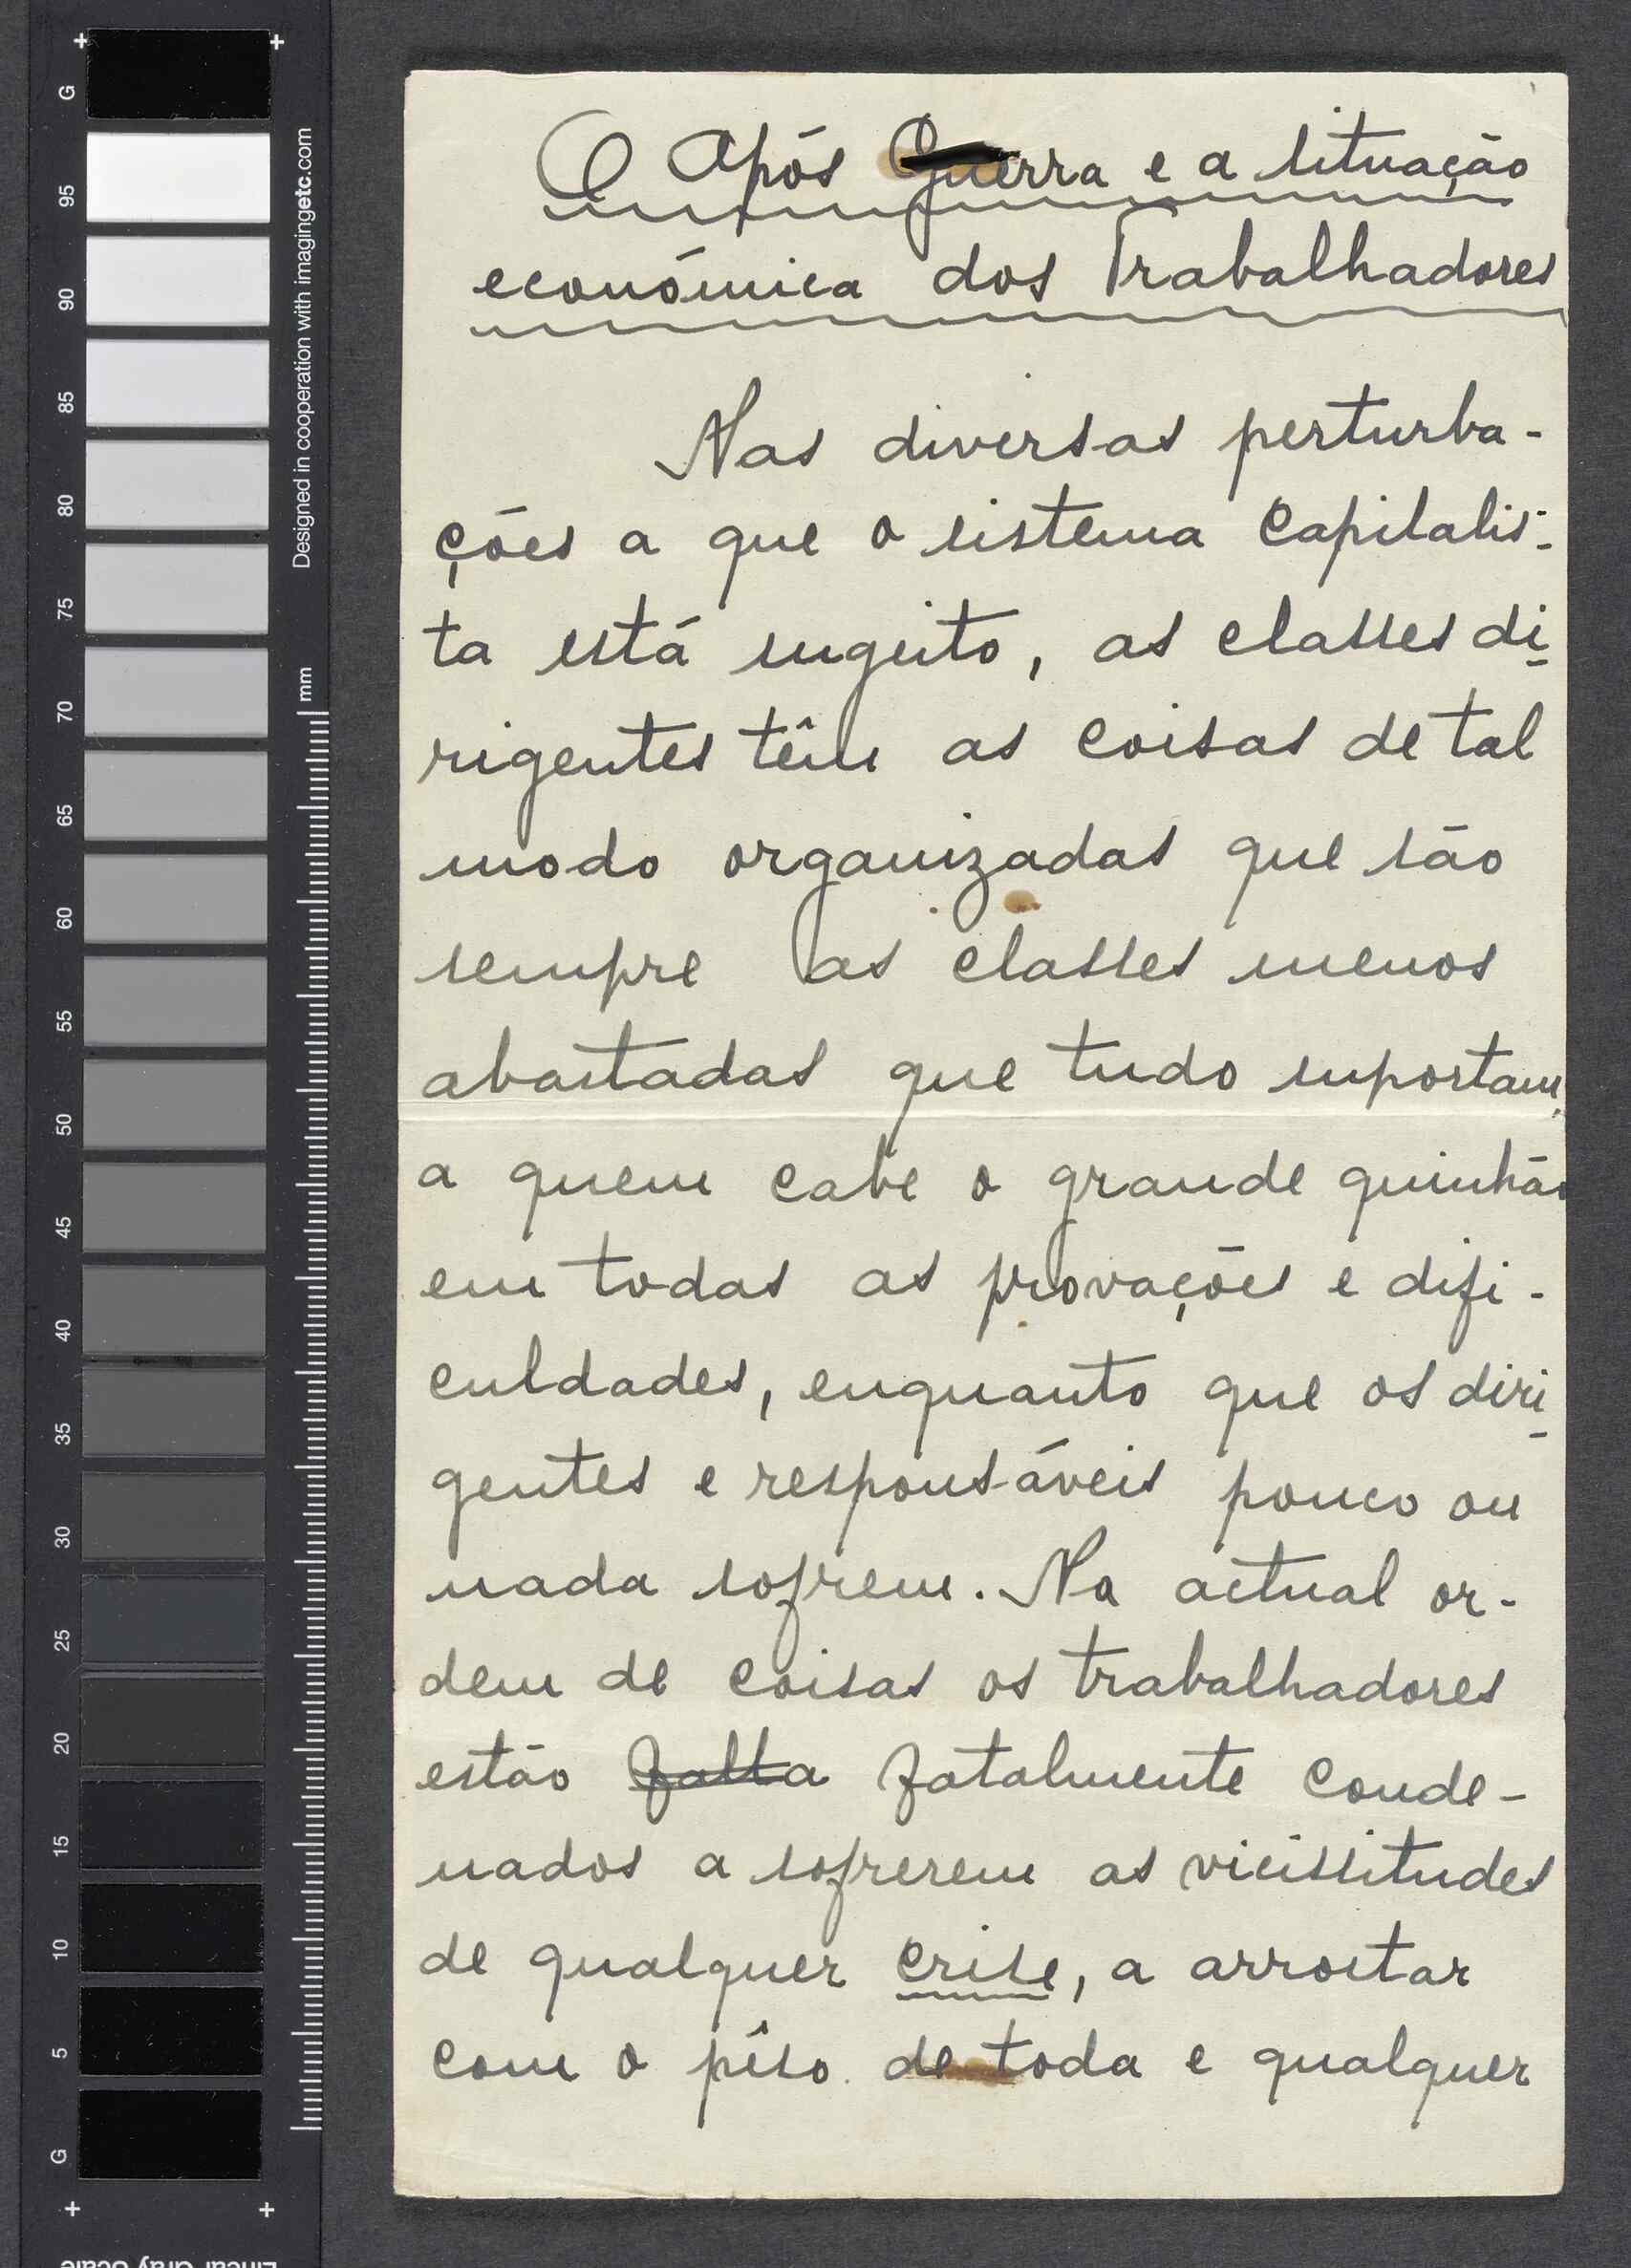 G
95
90
85
80
75
70
65
60
55
50
45
40
35
30
25
20
15
10
5
G
Designed in cooperation with imagingetc.com
mm
O Após Guerra e a situação
económica dos Trabalhadores
Nas diversas perturba-
ções a que o sistema capitalis-
ta está sugeito, as classes di-
rigentes têm as coisas de tal
modo organizadas que são
sempre as classes menos
abastadas que tudo suportam,
a quem cabe o grande quinhão
em todas as provações e difi-
culdades, enquanto que os diri-
gentes e responsáveis pouco ou
nada sofrem. Na actual or-
dem de coisas os trabalhadores
estão falta fatalmente conde-
nados a sofrerem as vicissitudes
de qualquer crise, a arrostar
com o pêso de toda e qualquer